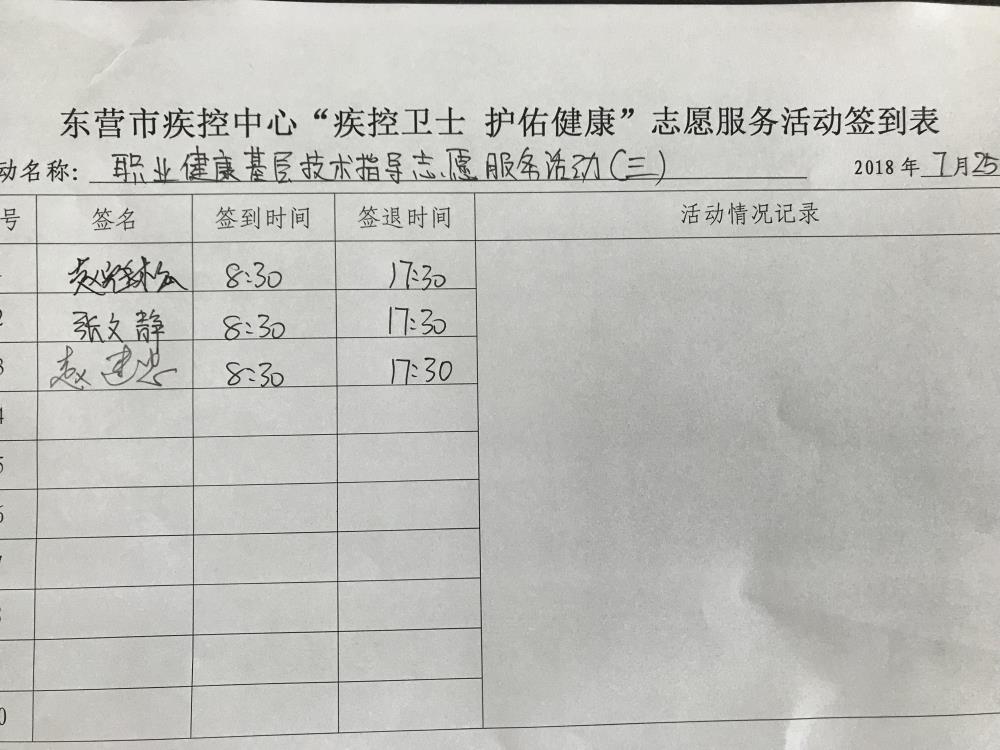 东营市疾控中心“疾控卫士 护佑健康”志愿服务活动签到表
动名称: 职业健康基层技术指导志愿服务活动(三) 2018年7月25
号 签名 签到时间 签退时间 活动情况记录
8:30 17:30
2 张文静 8:30 17:30
3 赵建忠 8:30 17:30
4
5
6
7
8
0